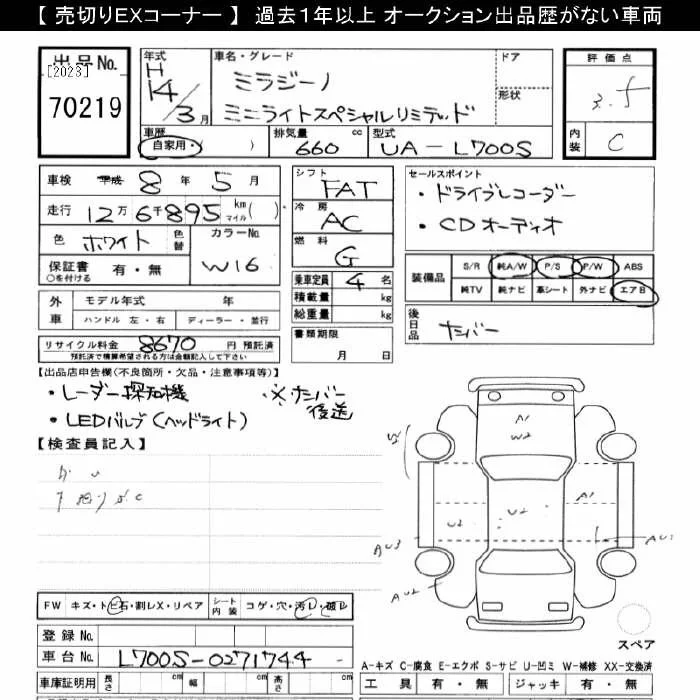 【 売切りEXコーナー 】 過去１年以上 オークション出品歴がない車両
出品No. [2023] 70219
年式 H14/3月
車名・グレード ミラジーノ ミニライトスペシャルリミテッド
ドア
形状
評価点 3.5
内装 C
車歴 自家用・( )
排気量 660 cc
型式 UA-L700S
車検 平成 8年 5月
走行 12万6千895 km マイル( )
色 ホワイト 色替
カラーNo. W16
保証書 有・無
○を付ける
外車 モデル年式 年
ハンドル 左・右 ディーラー・並行
リサイクル料金 8670円 預託済
預託済で精算希望される方は金額記入して下さい
シフト FAT
冷房 AC
燃料 G
乗車定員 4名
積載量 kg
総重量 kg
書類期限
月 日
セールスポイント
・ドライブレコーダー
・CDオーディオ
装備品 S/R 純A/W P/S P/W ABS
純TV 純ナビ 革シート 外ナビ エアB
後日品 ナンバー
【出品店申告欄(不良箇所・欠品・注意事項等)】
・レーダー探知機 ※ナンバー後送
・LEDバルブ(ヘッドライト)
【検査員記入】
A1
W2
U2
U2
U2
A1
AU3
AU1
AU2
FW キズ・トビ石・割レX・リペア
シート内装 コゲ・穴・汚レ・破レ
登録No.
車台No. L700S-0271744
車庫証明用 長さ cm 幅 cm 高さ cm
スペア
A-キズ C-腐食 E-エクボ S-サビ U-凹ミ W-補修 XX-交換済
工具 有・無 ジャッキ 有・無